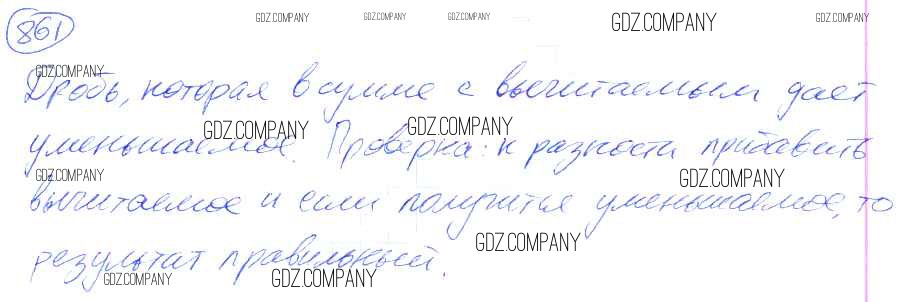 861
GDZ.COMPANY GDZ.COMPANY GDZ.COMPANY GDZ.COMPANY GDZ.COMPANY
GDZ.COMPANY
Дробь, которая в сумме с вычитаемым дает
GDZ.COMPANY GDZ.COMPANY
уменьшаемое. Проверка: к разности прибавить
GDZ.COMPANY GDZ.COMPANY
вычитаемое и если получится уменьшаемое, то
GDZ.COMPANY
результат правильный.
GDZ.COMPANY GDZ.COMPANY